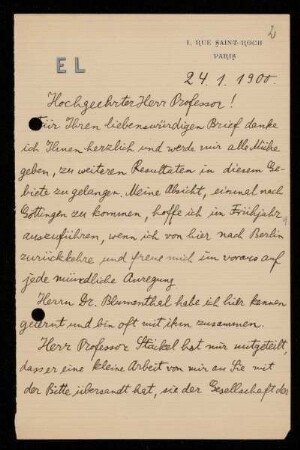 2
1, RUE SAINT-ROCH
PARIS
EL
24.1.1900.
Hochgeehrter Herr Professor!
Für Ihren liebenswürdigen Brief danke
ich Ihnen herzlich und werde mir alle Mühe
geben, zu weiteren Resultaten in diesem Ge-
biete zu gelangen. Meine Absicht, einmal nach
Göttingen zu kommen, hoffe ich im Frühjahr
auszuführen, wenn ich von hier nach Berlin
zurückkehre und freue mich im voraus auf
jede mündliche Anregung
Herrn Dr. Blumenthal habe ich hier kennen
gelernt und bin oft mit ihm zusammen.
Herr Professor Stäckel hat mir mitgeteilt,
dass er eine kleine Arbeit von mir an Sie mit
der Bitte übersandt hat, sie der Gesellschaft der